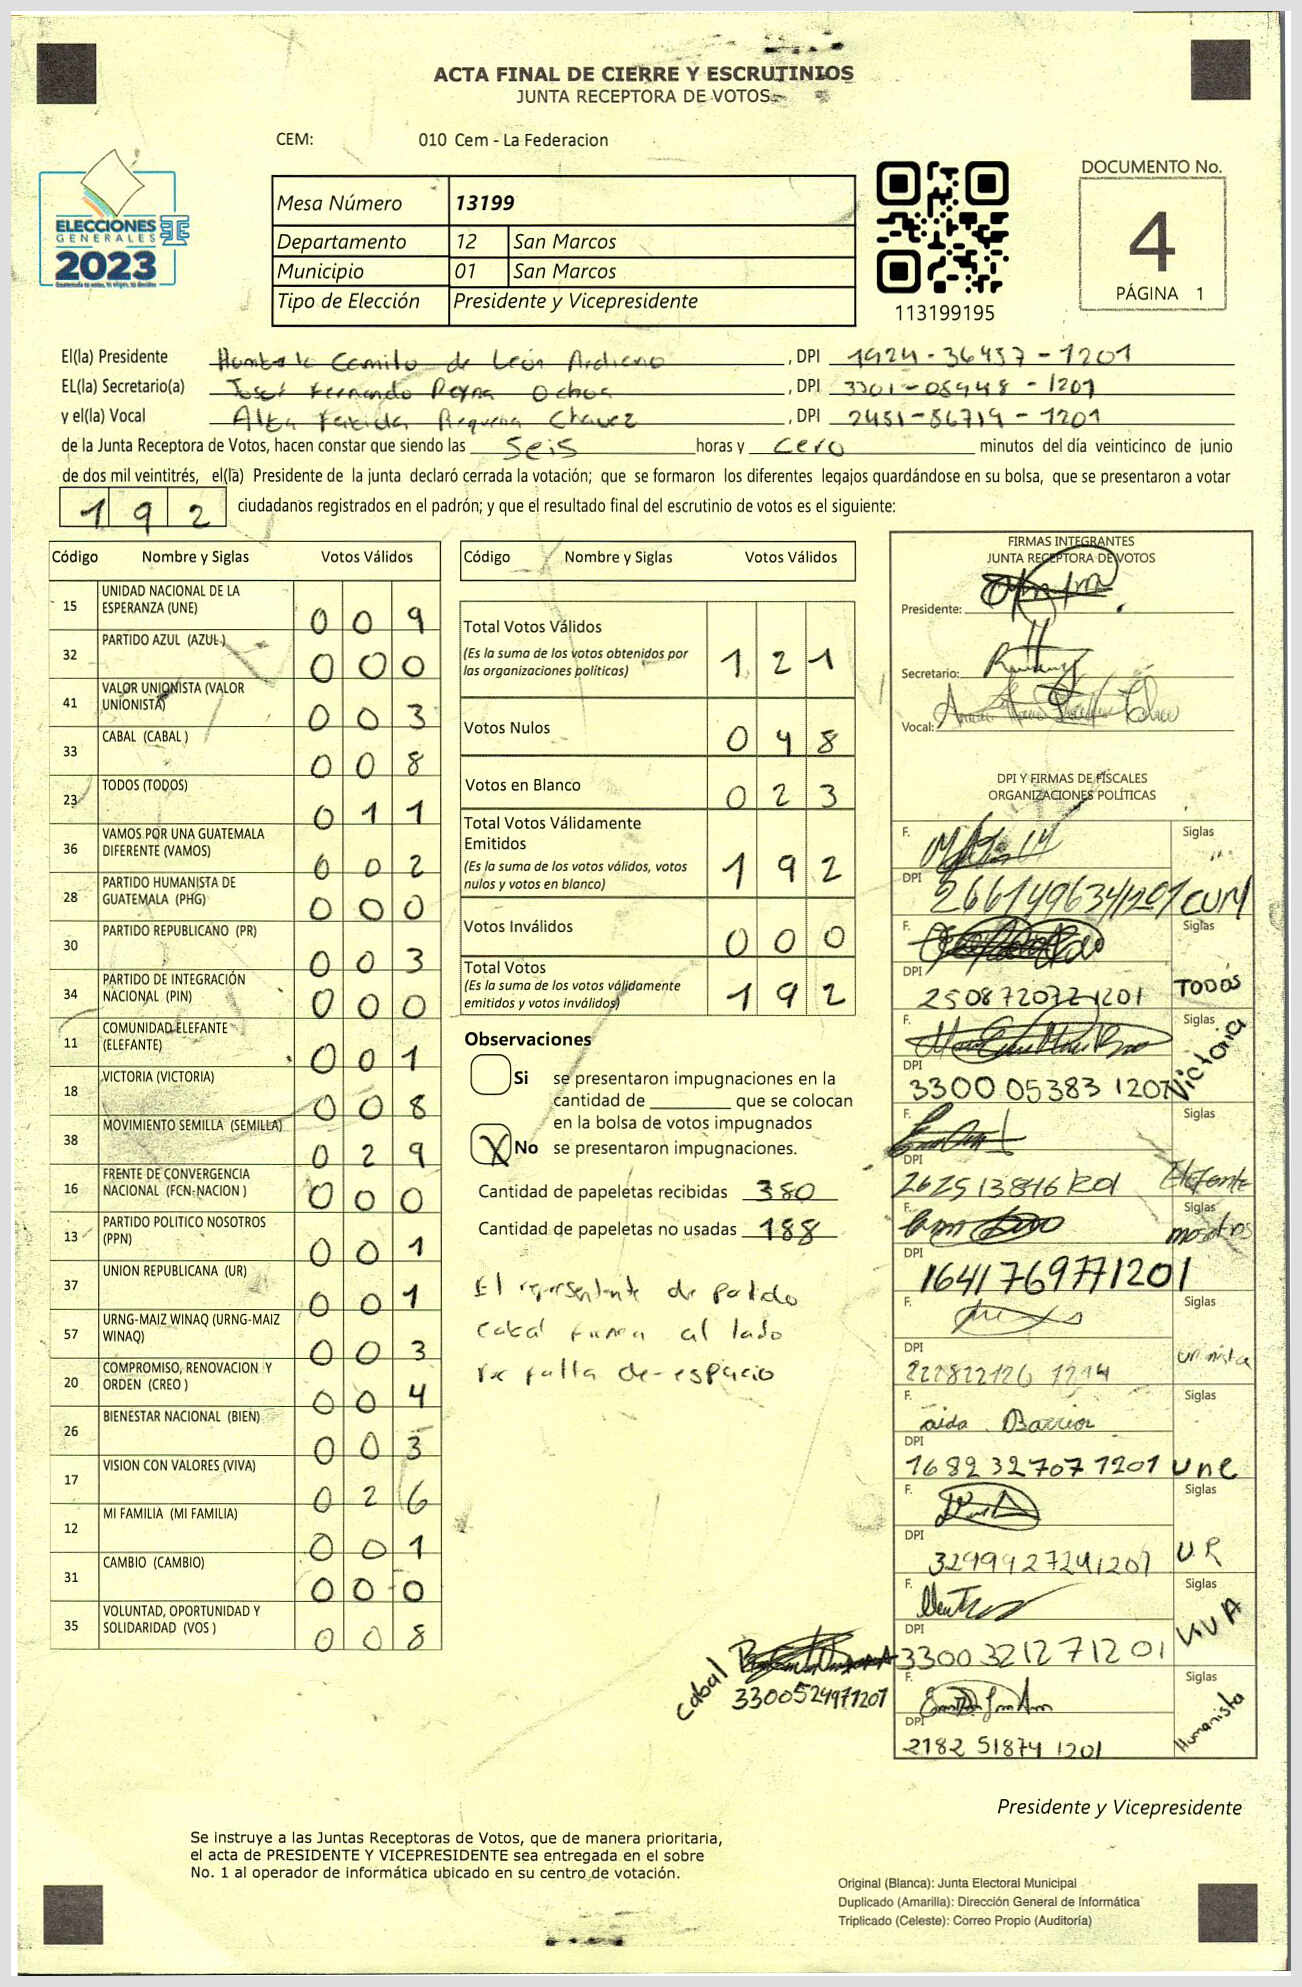 ACTA FINAL DE CIERRE Y ESCRUTINIOS
JUNTA RECEPTORA DE VOTOS
CEM: 010 Cem - La Federacion
ELECCIONES
GENERALES
2023
Mesa Número 13199
Departamento 12 San Marcos
Municipio 01 San Marcos
Tipo de Elección Presidente y Vicepresidente
113199195
DOCUMENTO No.
4
PÁGINA 1
El(la) Presidente Camilo de León , DPI 1924-36457-1201
EL(la) Secretario(a) José Fernando Reyna Ochoa , DPI 3301-05948-1201
y el(la) Vocal Requena Chavez , DPI 2451-86719-1201
de la Junta Receptora de Votos, hacen constar que siendo las seis horas y cero minutos del día veinticinco de junio
de dos mil veintitrés, el(la) Presidente de la junta declaró cerrada la votación; que se formaron los diferentes legajos guardándose en su bolsa, que se presentaron a votar
192 ciudadanos registrados en el padrón; y que el resultado final del escrutinio de votos es el siguiente:
Código Nombre y Siglas Votos Válidos
15 UNIDAD NACIONAL DE LA ESPERANZA (UNE) 009
32 PARTIDO AZUL (AZUL) 000
41 VALOR UNIONISTA (VALOR UNIONISTA) 003
33 CABAL (CABAL ) 008
23 TODOS (TODOS) 011
36 VAMOS POR UNA GUATEMALA DIFERENTE (VAMOS) 002
28 PARTIDO HUMANISTA DE GUATEMALA (PHG) 000
30 PARTIDO REPUBLICANO (PR) 003
34 PARTIDO DE INTEGRACIÓN NACIONAL (PIN) 000
11 COMUNIDAD ELEFANTE (ELEFANTE) 001
18 VICTORIA (VICTORIA) 008
38 MOVIMIENTO SEMILLA (SEMILLA) 029
16 FRENTE DE CONVERGENCIA NACIONAL (FCN-NACION ) 000
13 PARTIDO POLITICO NOSOTROS (PPN) 001
37 UNION REPUBLICANA (UR) 001
57 URNG-MAIZ WINAQ (URNG-MAIZ WINAQ) 003
20 COMPROMISO, RENOVACION Y ORDEN (CREO ) 004
26 BIENESTAR NACIONAL (BIEN) 003
17 VISION CON VALORES (VIVA) 026
12 MI FAMILIA (MI FAMILIA) 001
31 CAMBIO (CAMBIO) 000
35 VOLUNTAD, OPORTUNIDAD Y SOLIDARIDAD (VOS ) 008
Código Nombre y Siglas Votos Válidos
Total Votos Válidos 121
(Es la suma de los votos obtenidos por
las organizaciones políticas)
Votos Nulos 048
Votos en Blanco 023
Total Votos Válidamente
Emitidos 192
(Es la suma de los votos válidos, votos
nulos y votos en blanco)
Votos Inválidos 000
Total Votos 192
(Es la suma de los votos válidamente
emitidos y votos inválidos)
Observaciones
Si se presentaron impugnaciones en la
cantidad de ________ que se colocan
en la bolsa de votos impugnados
X No se presentaron impugnaciones.
Cantidad de papeletas recibidas 380
Cantidad de papeletas no usadas 188
El representante de partido
cabal firma al lado
por falta de espacio
cabal
3300524971201
FIRMAS INTEGRANTES
JUNTA RECEPTORA DE VOTOS
Presidente:
Secretario:
Vocal:
DPI Y FIRMAS DE FISCALES
ORGANIZACIONES POLÍTICAS
F. Siglas
DPI 2661496341201 CUM
F. Siglas
DPI 2508720721201 TODOS
F. Siglas
DPI 3300053831207 Victoria
F. Siglas
DPI 262513846 1201 Elefante
F. Siglas
DPI 1641769771201 nosotros
F. Siglas
DPI 222822126 1214 unionista
F. aida Barrios Siglas
DPI 1682 32707 1201 une
F. Siglas
DPI 3299927241201 U.R
F. Siglas
DPI 3300321271201 VIVA
F. Siglas
DPI 2182 51874 1201 Humanista
Presidente y Vicepresidente
Se instruye a las Juntas Receptoras de Votos, que de manera prioritaria,
el acta de PRESIDENTE Y VICEPRESIDENTE sea entregada en el sobre
No. 1 al operador de informática ubicado en su centro de votación.
Original (Blanca): Junta Electoral Municipal
Duplicado (Amarilla): Dirección General de Informática
Triplicado (Celeste): Correo Propio (Auditoría)